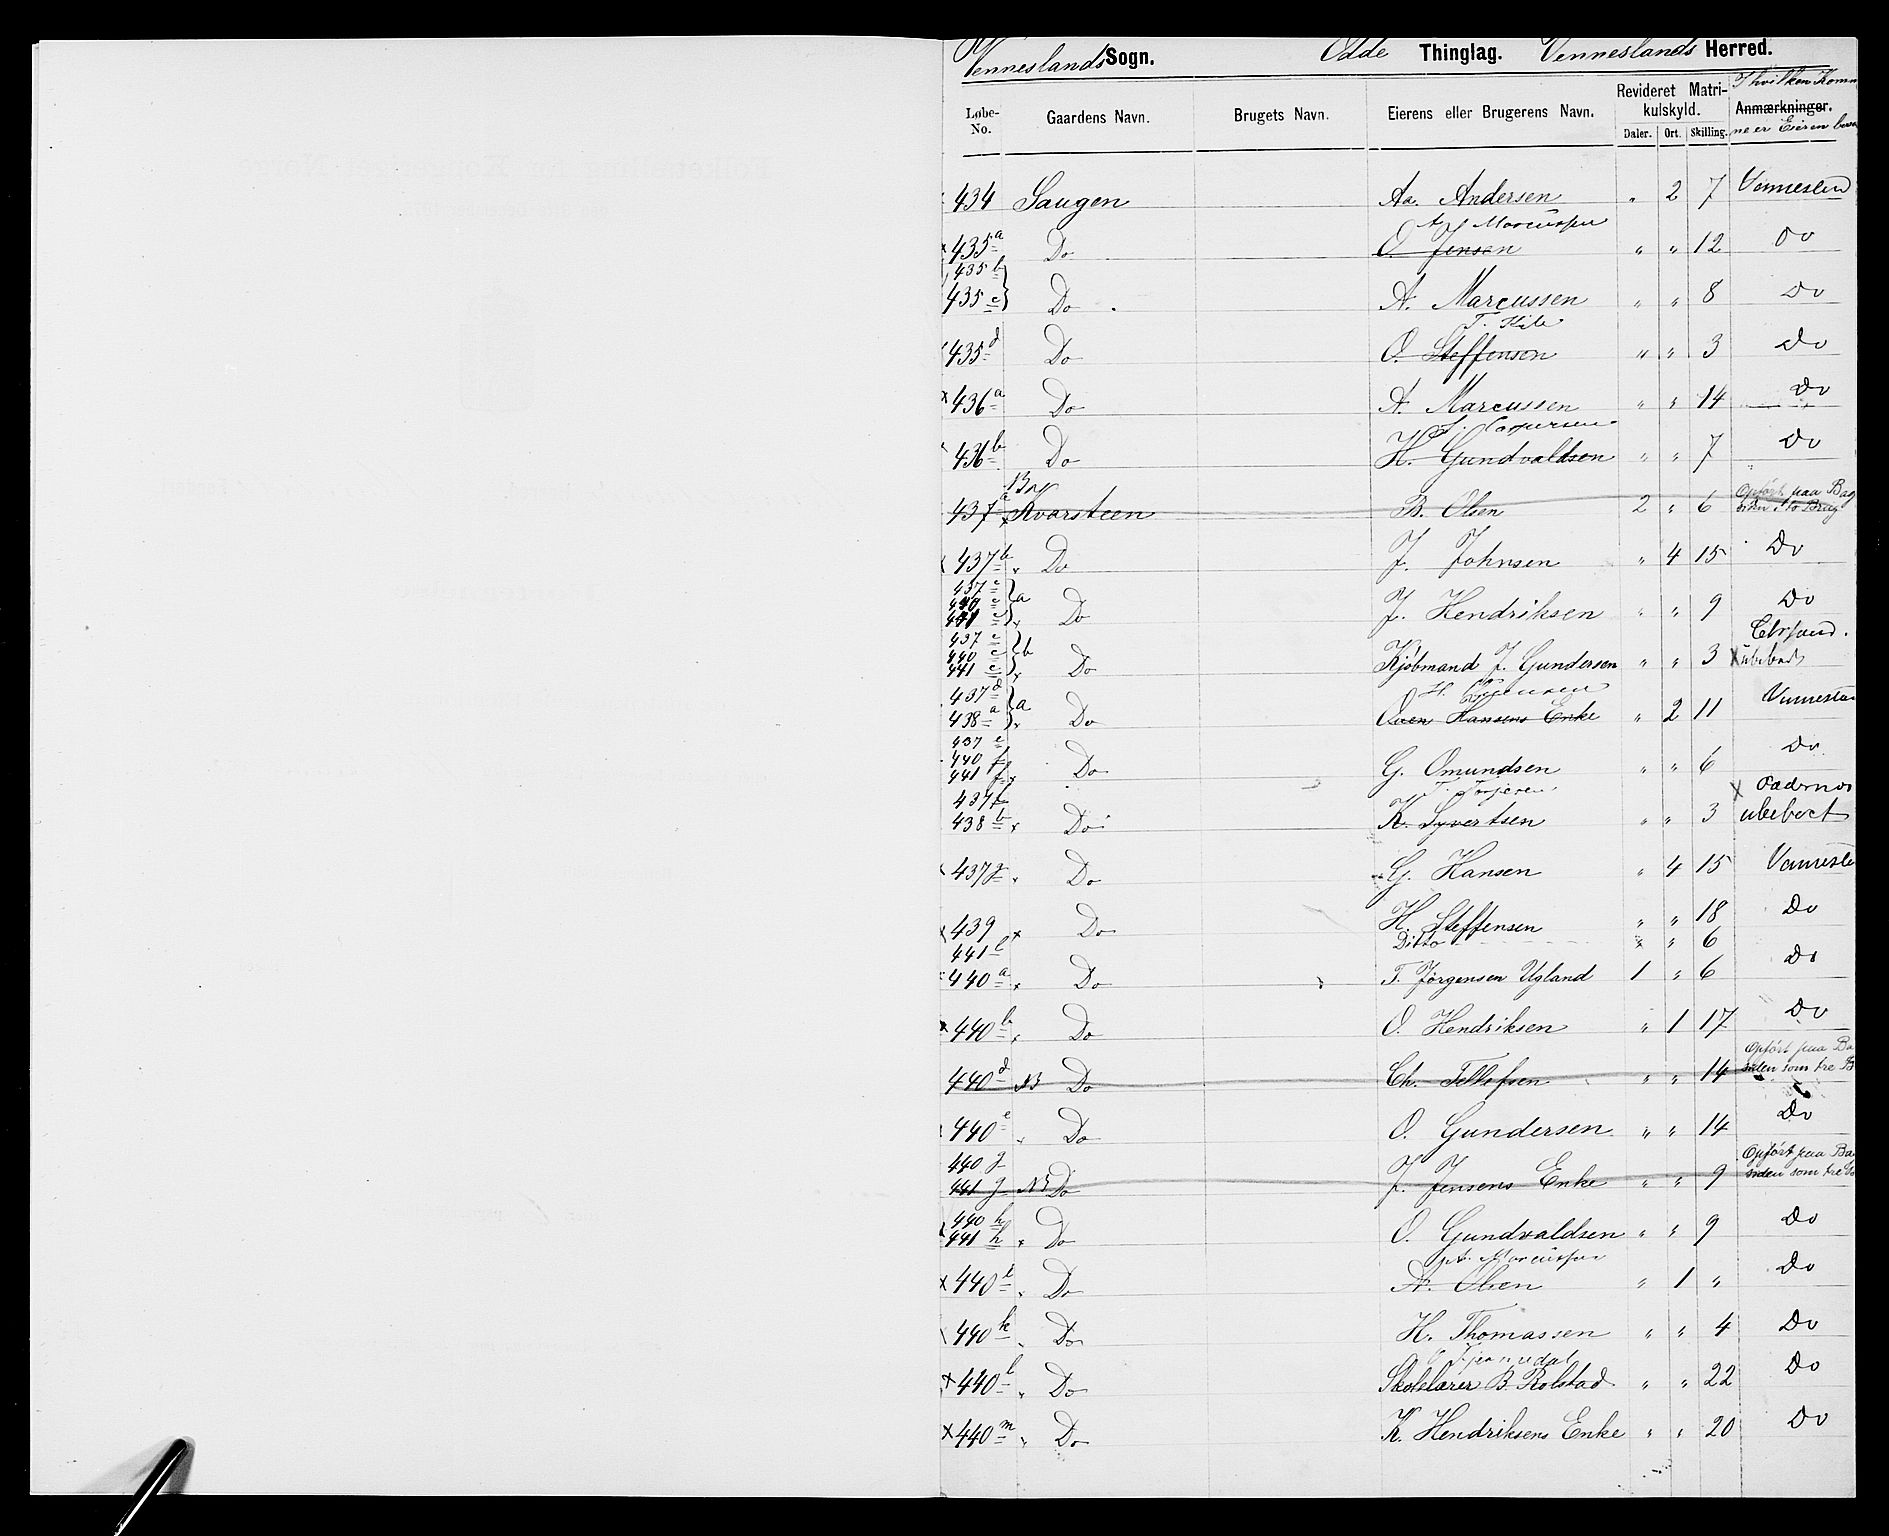 Venneslands Sogn. Odde Thinglag. Venneslands Herred.
Løbe-No. Gaardens Navn. Brugets Navn. Eierens eller Brugerens Navn. Revideret Matrikulskyld. Daler. Ort. Skilling. Anmærkninger. I hvilken Komm ne er Eieren
434 Saugen Aa. Andersen " 2 7
A. Marcussen
435 a Do O. Jensen " " 12 Do
435 b
435 c Do A. Marcussen " " 8 Do
435 d Do O. Steffensen " " 3 Do
436 a Do A. Marcussen " " 14 Do
436 b Do H. Gundvaldsen " " 7 Do
437 a Kvarsteen B. Olsen 2 " 6 Opført paa Bag
siden i to Brug
437 b Do J. Johnsen " 4 15 Do
437 c
440 c
441 c a Do J. Hendriksen " " 9 Do
437 c
440 c
441 c b Do Kjøbmand J. Gundersen " " 3 Chrsand. ubebod
437 d
438 a a Do Oven Hansens Enke " 2 11
437 e
440 f
441 f Do G. Omundsen " " 6 Do
437 f
438 b Do K. Syvertsen " " 3 ubeboet
437 g Do G. Hansen " 4 15
439 Do H. Steffensen " " 18 Do
441 l Ditto " " 6
440 a Do T. Jørgensen Ugland 1 " 6 Do
440 b Do O. Hendriksen " 1 17 Do
440 d NB Do Ch. Tellefsen " " 14 Opført paa Ba
siden som tre B
440 e Do O. Gundersen " " 14 Do
440 g
441 g NB Do J. Jensens Enke " " 9 Opført paa Ba
siden som tre
440 h
441 h Do O. Gundvaldsen " " 9 Do
A. Marcussen
440 i Do A. Olsen " 1 " Do
440 k Do H. Thomassen " " 4 Do
440 l Do Skolelærer B. Rolstad " " 22 Do
440 m Do K. Hendriksens Enke " " 20 Do